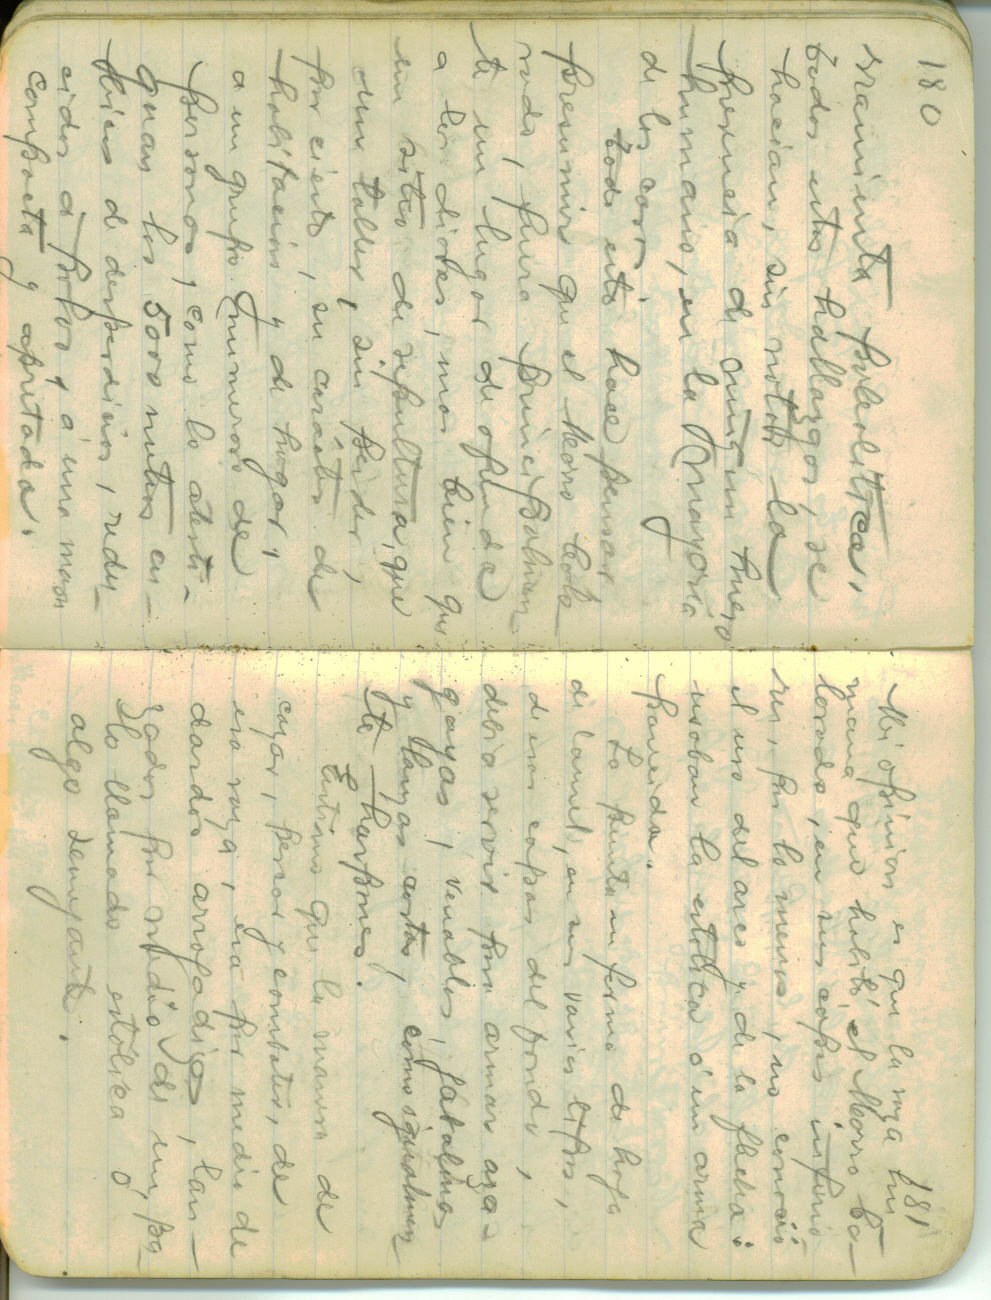 180
rramienta paleolítica,
todos estos hallazgos, se
hacían, sin notar la
presencia de ningún hueso
humano, en la mayoría
de los casos.
Todo esto hace pensar
presumir que el Morro
fuera principalmen
te un lugar de ofrenda
a los dioses, mas bien que
un sitio de sepultura, que
un taller, sin perder,
por cierto, su carácter de
habitación y de hogar,
a un grupo numeroso de
personas, como lo atesti-
guan los 5000 metros cú-
bicos de desperdicios, redu-
cidos a polvo y a una masa
compacta y apretada.
181
Mi opinión es que la raza hu
mana que habitó el Morro
en sus capas inferio
res, por lo menos, no conoció
el uso del arco y de la flecha:
usaban la estólica ó un arma
parecida.
La punta en forma de hoja
de laurel, en sus varios tipos,
de esas capas del fondo,
debió servir para armar aza-
gayas, venables,
y lanzas cortas, como igualmen
te harpones.
Estimo que la manera de
cazar, pescar y combatir, de
esa raza, era por medio de
dardos arrojadizos, lan-
zados por medio de un pa-
lo llamado estólica ó
algo semejante.